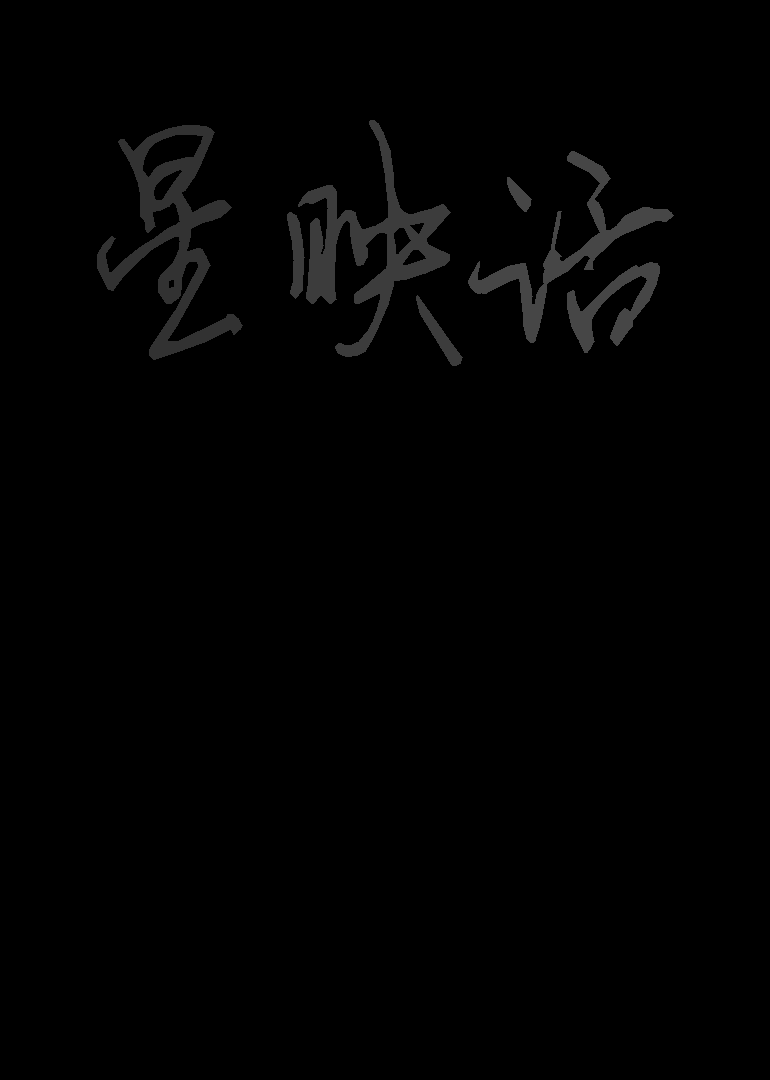 星映话